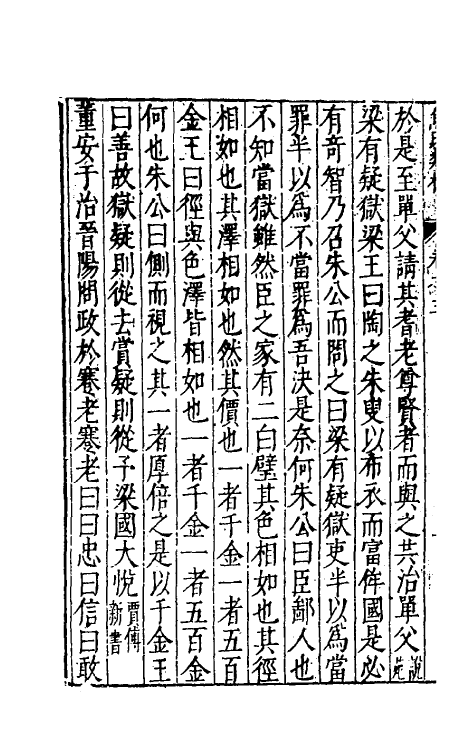 於是至單父請其耆老尊賢者而與之共治單父說苑
梁有疑獄梁王曰陶之朱叟以布衣而富侔國是必
有奇智乃召朱公而問之曰梁有疑獄吏半以爲當
罪半以爲不當罪爲吾決是奈何朱公曰臣鄙人也
不知當獄雖然臣之家有二白璧其色相如也其徑
相如也其澤相如也然其價也一者千金一者五百
金王曰徑與色澤皆相如也一者千金一者五百金
何也朱公曰側而視之其一者厚倍之是以千金王
曰善故獄疑則從去賞疑則從予梁國大悅賈傅新書
董安于治晉陽問政於蹇老蹇老曰曰忠曰信曰敢